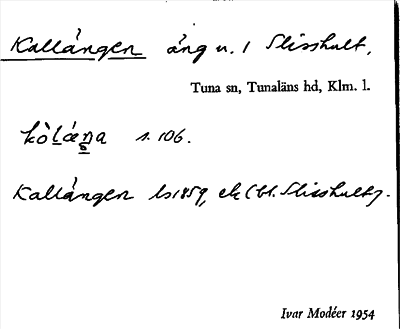 Kallängen äng u. / Slisshult,
Tuna sn, Tunaläns hd, Klm. l.
s. 106.
Kallängen ls 1859, ek (bl. Slisshult).
Ivar Modéer 1954